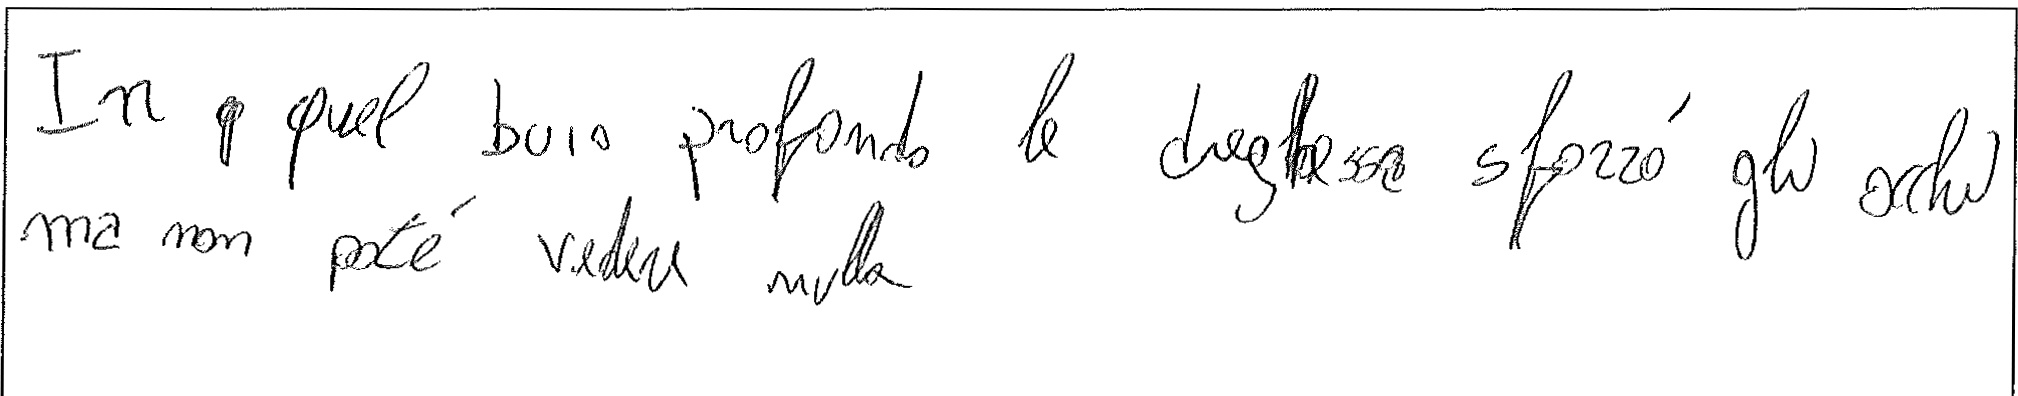 In q quel buio profondo la draghessa sforzó gli occhi
ma non poté vedere nulla